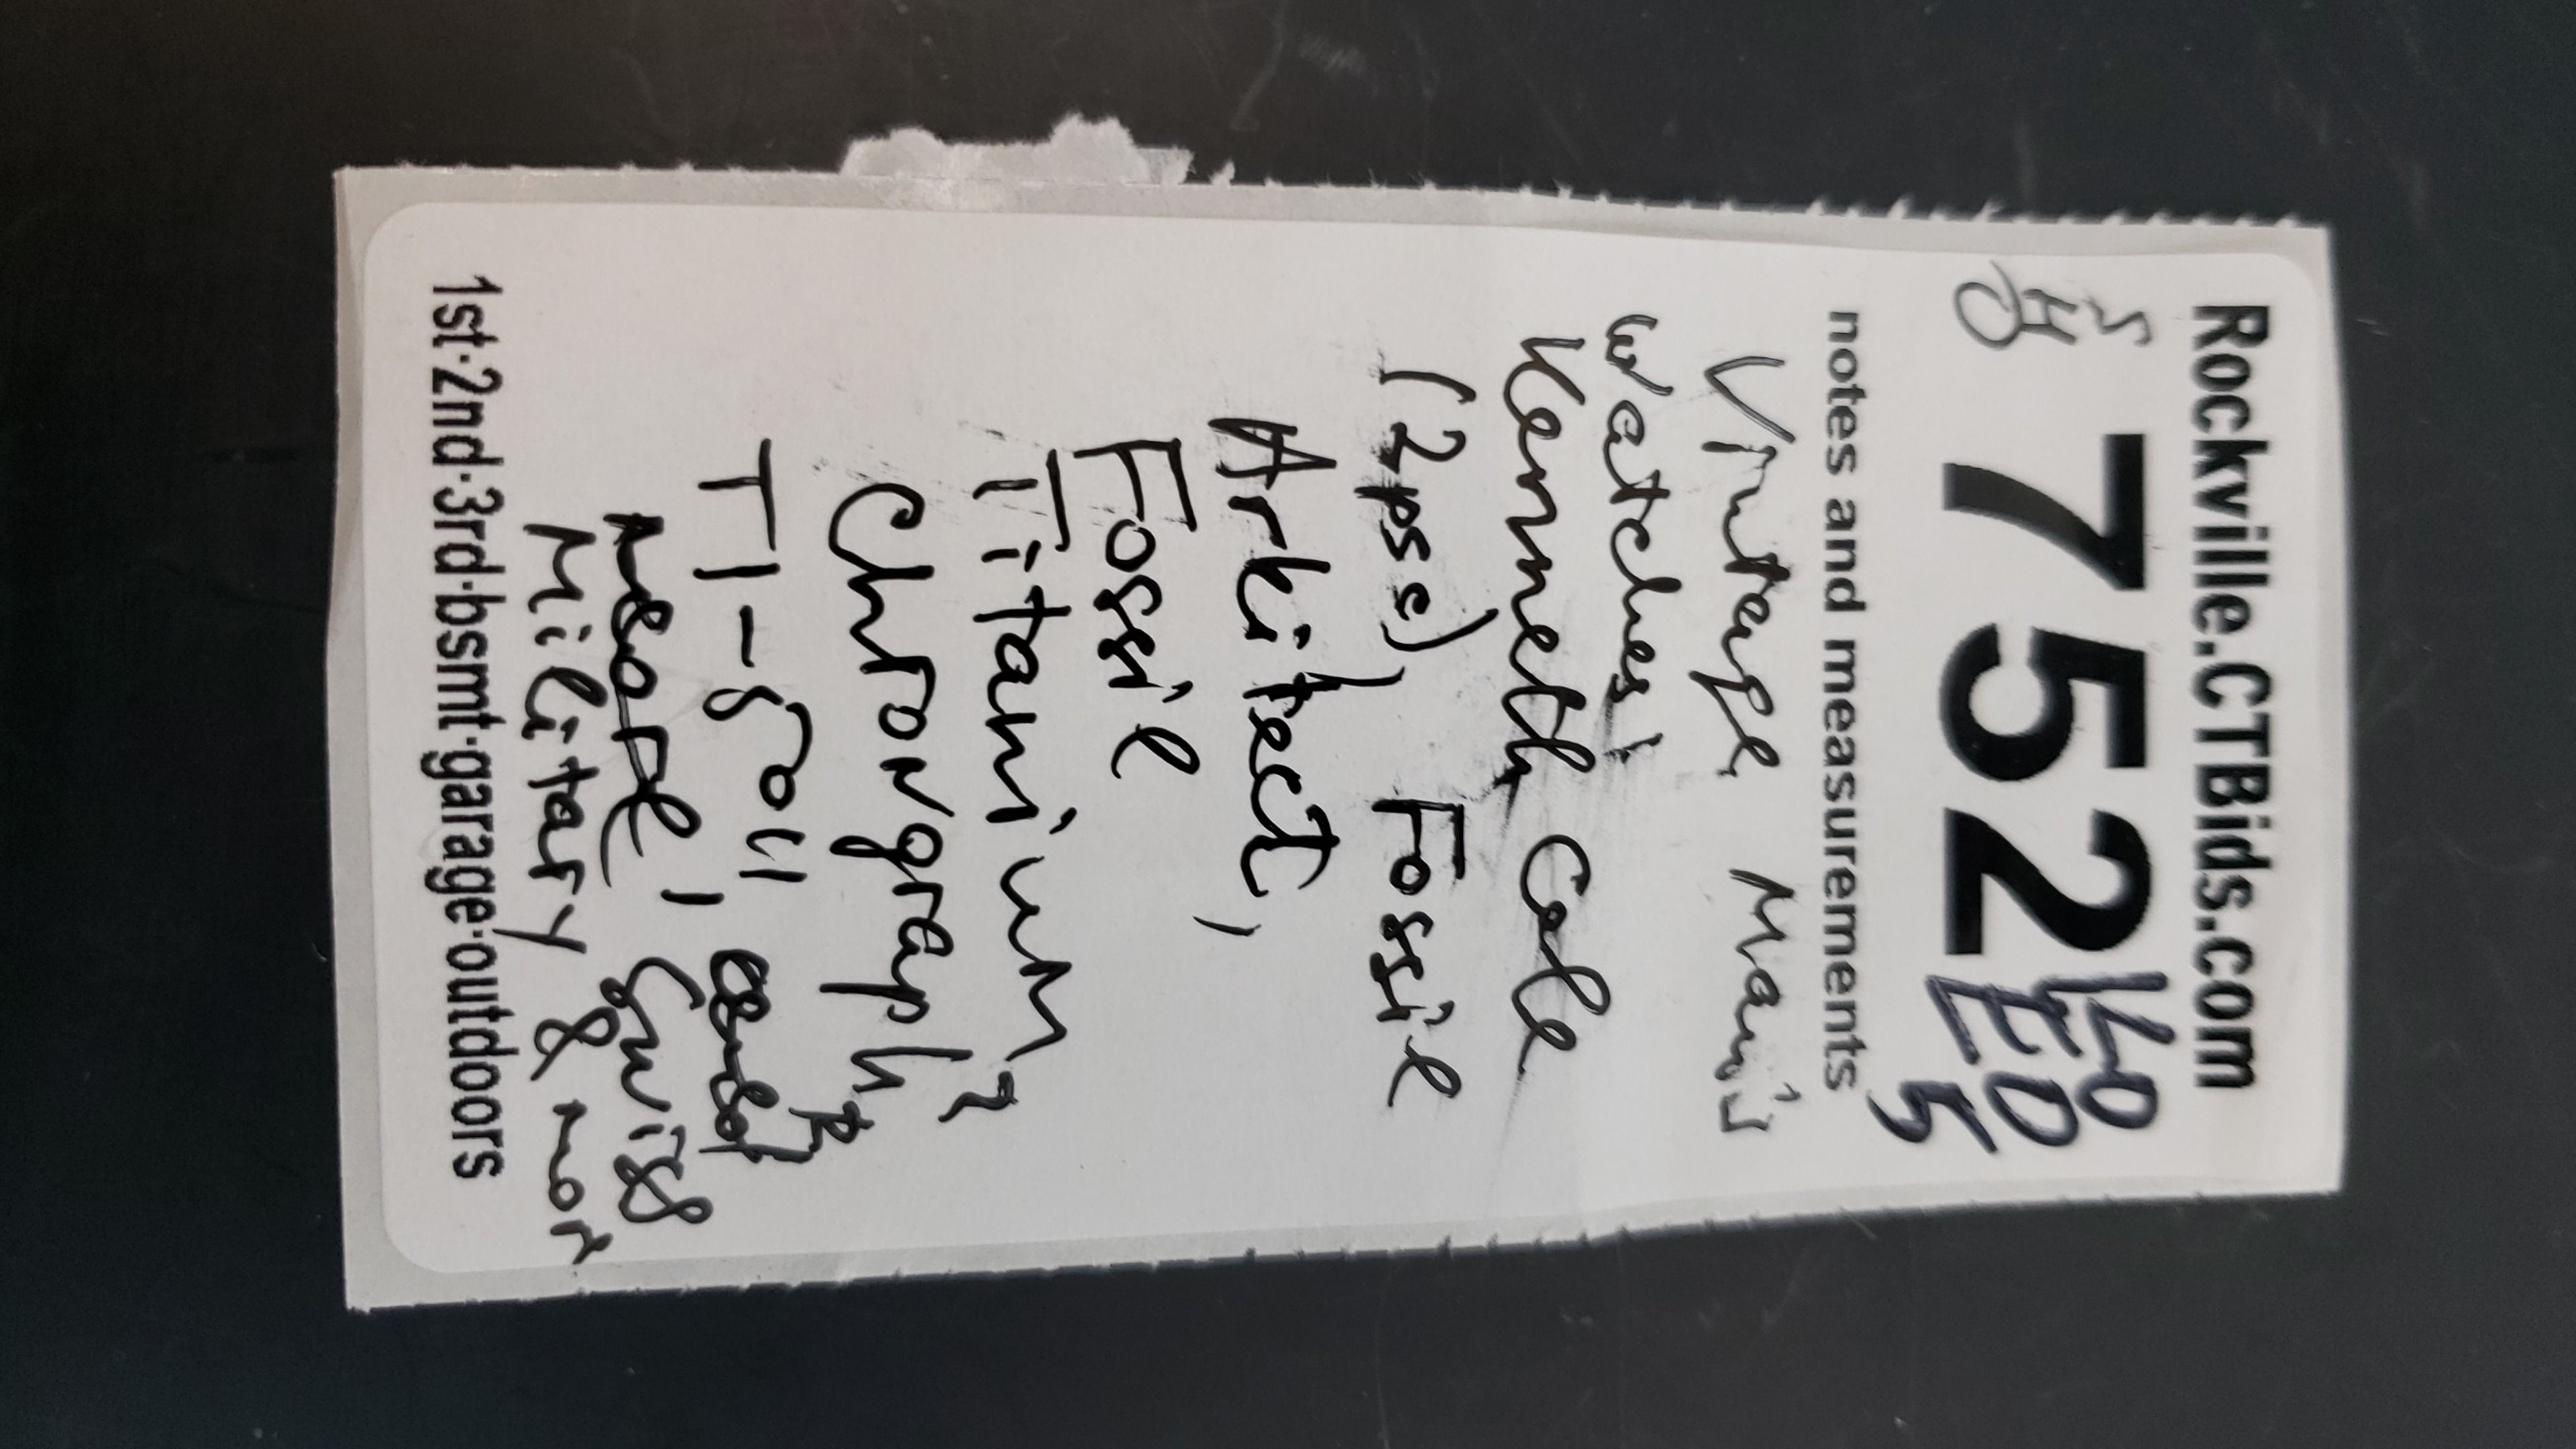 Rockville.CTBids.com
7521
notes and measurements
Vintage Man's
Watches:
Kenneth Cole
(2psc), Fossil
Arkitect,
Fossil
Titanium
Chronograph
TI-5011
more, Swiss
Military & mor
1st·2nd·3rd·bsmt·garage·outdoors